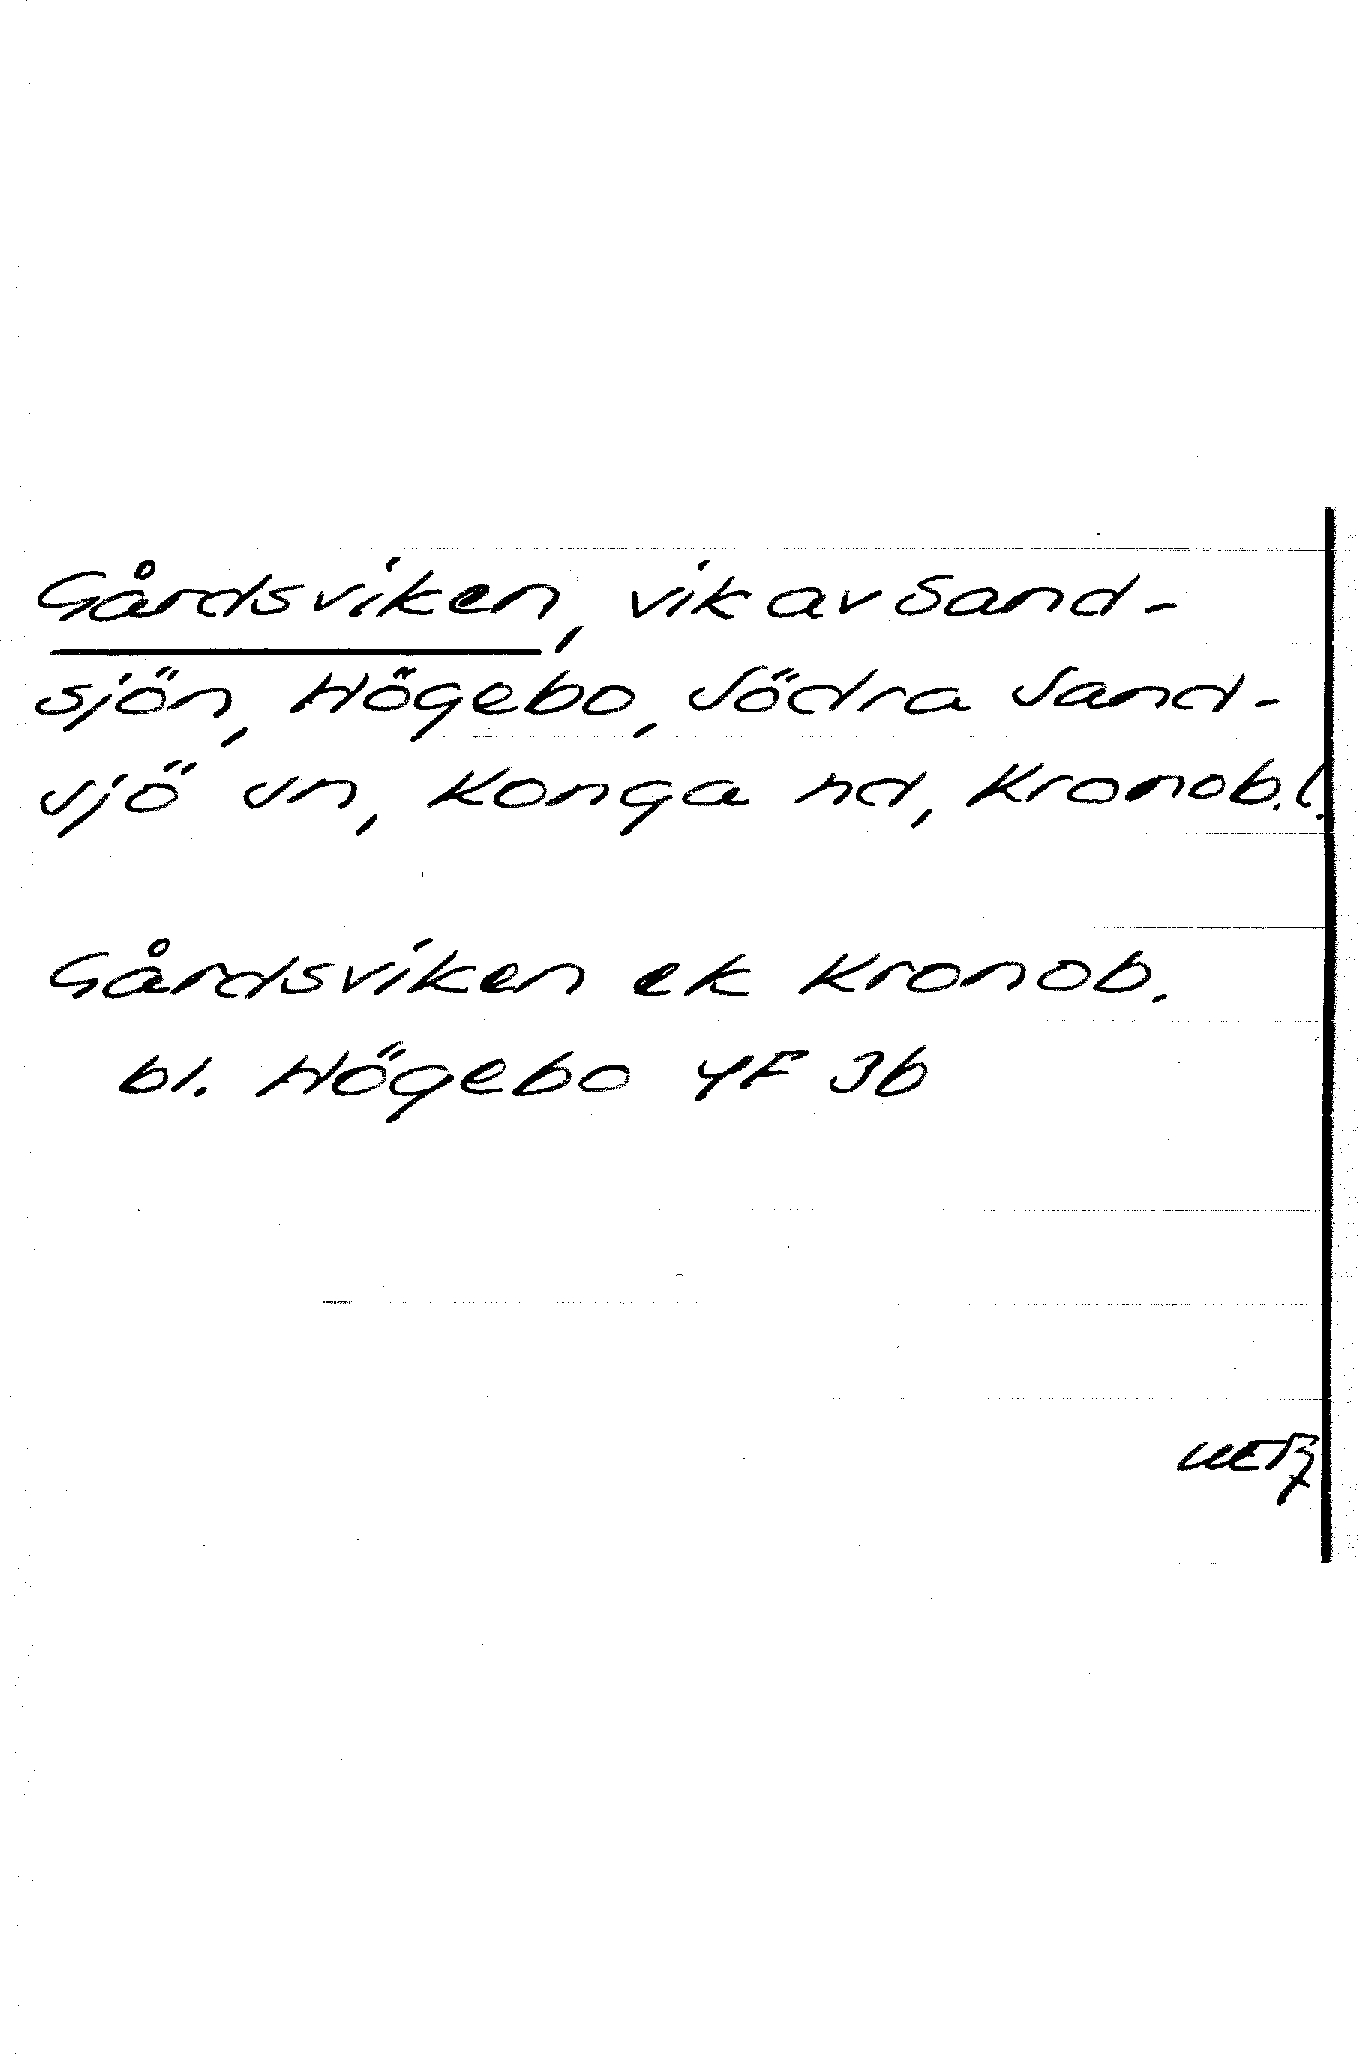 Gårdsviken, vik av Sand-
sjön, Högebo, Södra Sand-
sjö sn, Konga hd, Kronob.l.
Gårdsviken ek Kronob.
bl. Högebo 4F 3b